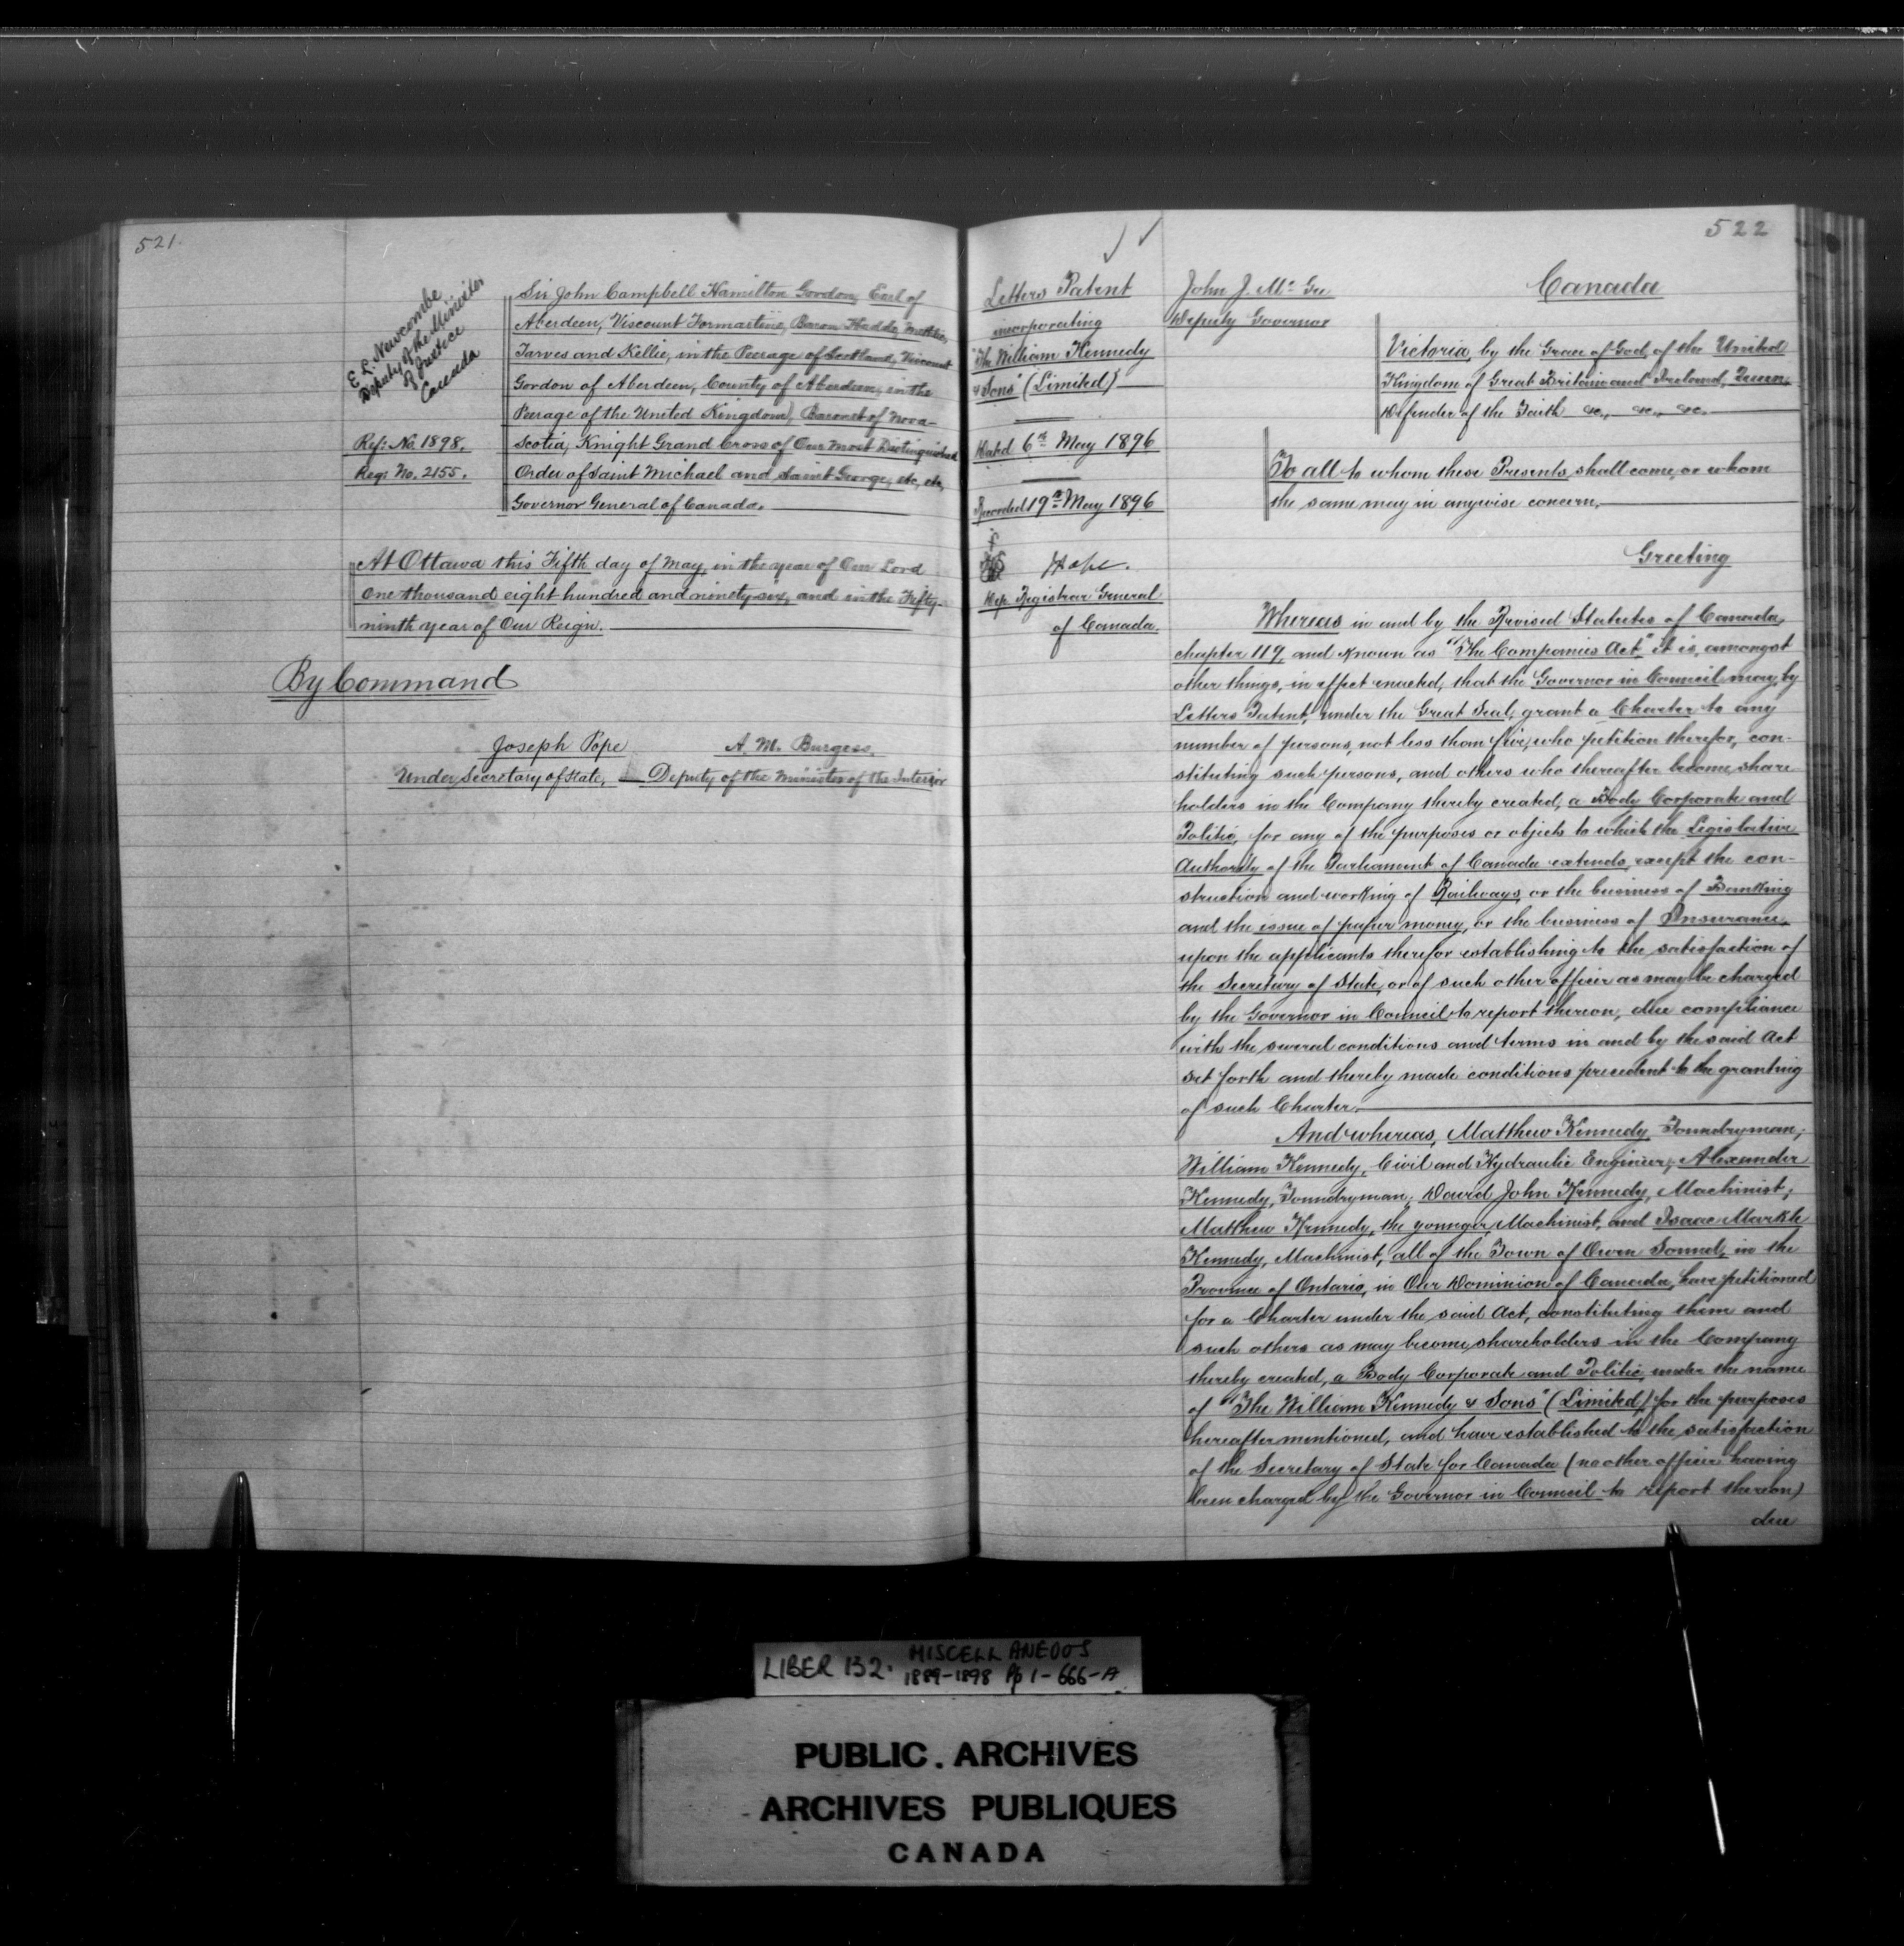 521.
E. L. Newcombe
Deputy of the Minister
of Justice
Canada
Ref: No. 1898.
Reg: No. 2155.
Sir John Campbell Hamilton Gordon, Earl of
Aberdeen, Viscount Formartine, Baron Haddo, Methlic,
Tarves and Kellie, in the Peerage of Scotland, Viscount
Gordon of Aberdeen, County of Aberdeen, in the
Peerage of the United Kingdom, Baronet of Nova-
Scotia, Knight Grand Cross of Our Most Distinguished
Order of Saint Michael and Saint George, etc, etc,
Governor General of Canada.
At Ottawa this Fifth day of May, in the year of Our Lord
One thousand eight hundred and ninety-six, and in the Fifty-
ninth year of Our Reign.
By Command
Joseph Pope A. M. Burgess
Under Secretary of State, Deputy of the Minister of the Interior
522
Letters Patent
incorporating
"The William Kennedy
& Sons" (Limited)
Dated 6th May 1896
Recorded 19th May 1896
Dep. Registrar General
of Canada.
John J. McGee
Deputy Governor
Canada
Victoria, by the Grace of God, of the United
Kingdom of Great Britain and Ireland, Queen,
Defender of the Faith &c., &c., &c.
To all to whom these Presents shall come, or whom
the same may in anywise concern,
Greeting
Whereas in and by the Revised Statutes of Canada,
chapter 119, and known as "The Companies Act" it is, amongst
other things, in effect enacted, that the Governor in Council may, by
Letters Patent, under the Great Seal, grant a Charter to any
number of persons, not less than five, who petition therefor, con-
stituting such persons, and others who thereafter become share-
holders in the Company thereby created, a Body Corporate and
Politic, for any of the purposes or objects to which the Legislative
Authority of the Parliament of Canada extends, except the con-
struction and working of Railways, or the business of Banking
and the issue of paper money, or the business of Insurance,
upon the applicants therefor establishing to the satisfaction of
the Secretary of State, or of such other officer as may be charged
by the Governor in Council to report thereon, due compliance
with the several conditions and terms in and by the said Act
set forth and thereby made conditions precedent to the granting
of such Charter.
And whereas, Matthew Kennedy, Foundryman;
William Kennedy, Civil and Hydraulic Engineer; Alexander
Kennedy, Foundryman; David John Kennedy, Machinist;
Matthew Kennedy, the younger, Machinist, and Isaac Markle
Kennedy, Machinist, all of the Town of Owen Sound, in the
Province of Ontario, in Our Dominion of Canada, have petitioned
for a Charter under the said Act, constituting them and
such others as may become shareholders in the Company
thereby created, a Body Corporate and Politic, under the name
of "The William Kennedy & Sons" (Limited) for the purposes
hereafter mentioned, and have established to the satisfaction
of the Secretary of State for Canada (no other officer having
been charged by the Governor in Council to report thereon)
due
LIBER 132. MISCELLANEOUS
1889-1898 Pp 1-666-A
PUBLIC. ARCHIVES
ARCHIVES PUBLIQUES
CANADA